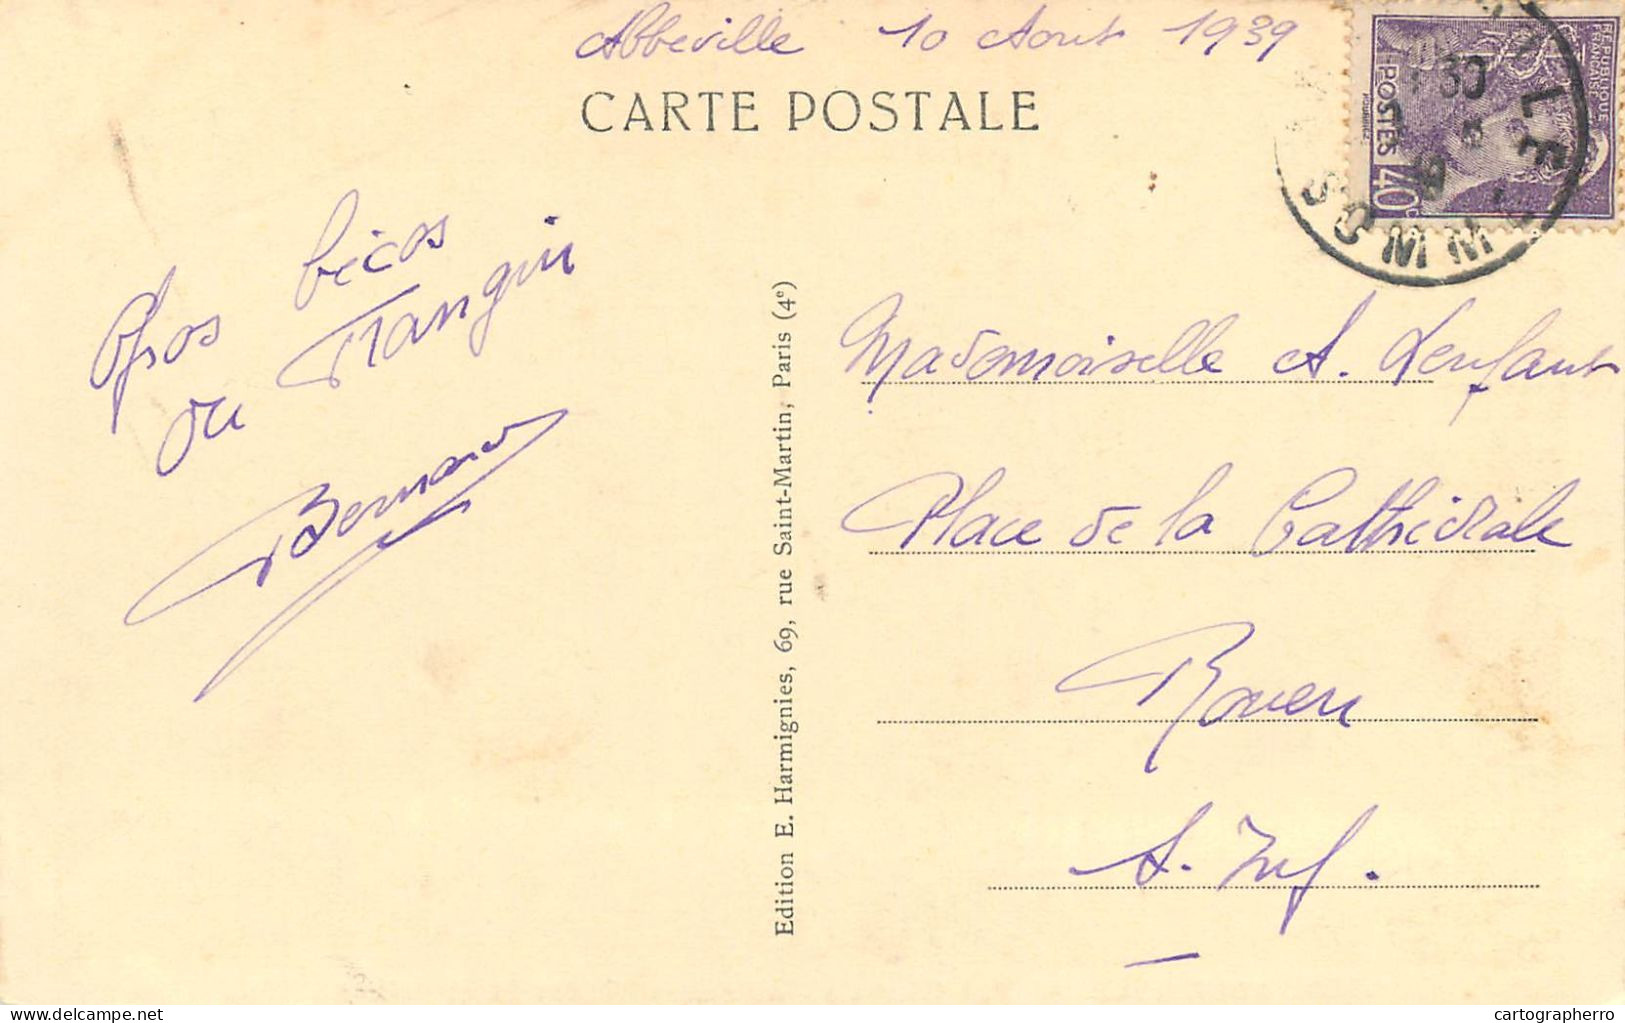 Abbeville 10 Aout 1939
CARTE POSTALE
REPUBLIQUE
FRANÇAISE
POSTES
40c
30
SOMME
Gros bécos
du Mangin
Bernard
Edition E. Harmignies, 69, rue Saint-Martin, Paris (4e)
Mademoiselle A. Lenfant
Place de la Cathédrale
Rouen
S. Inf.
delcampe.net
cartographerro